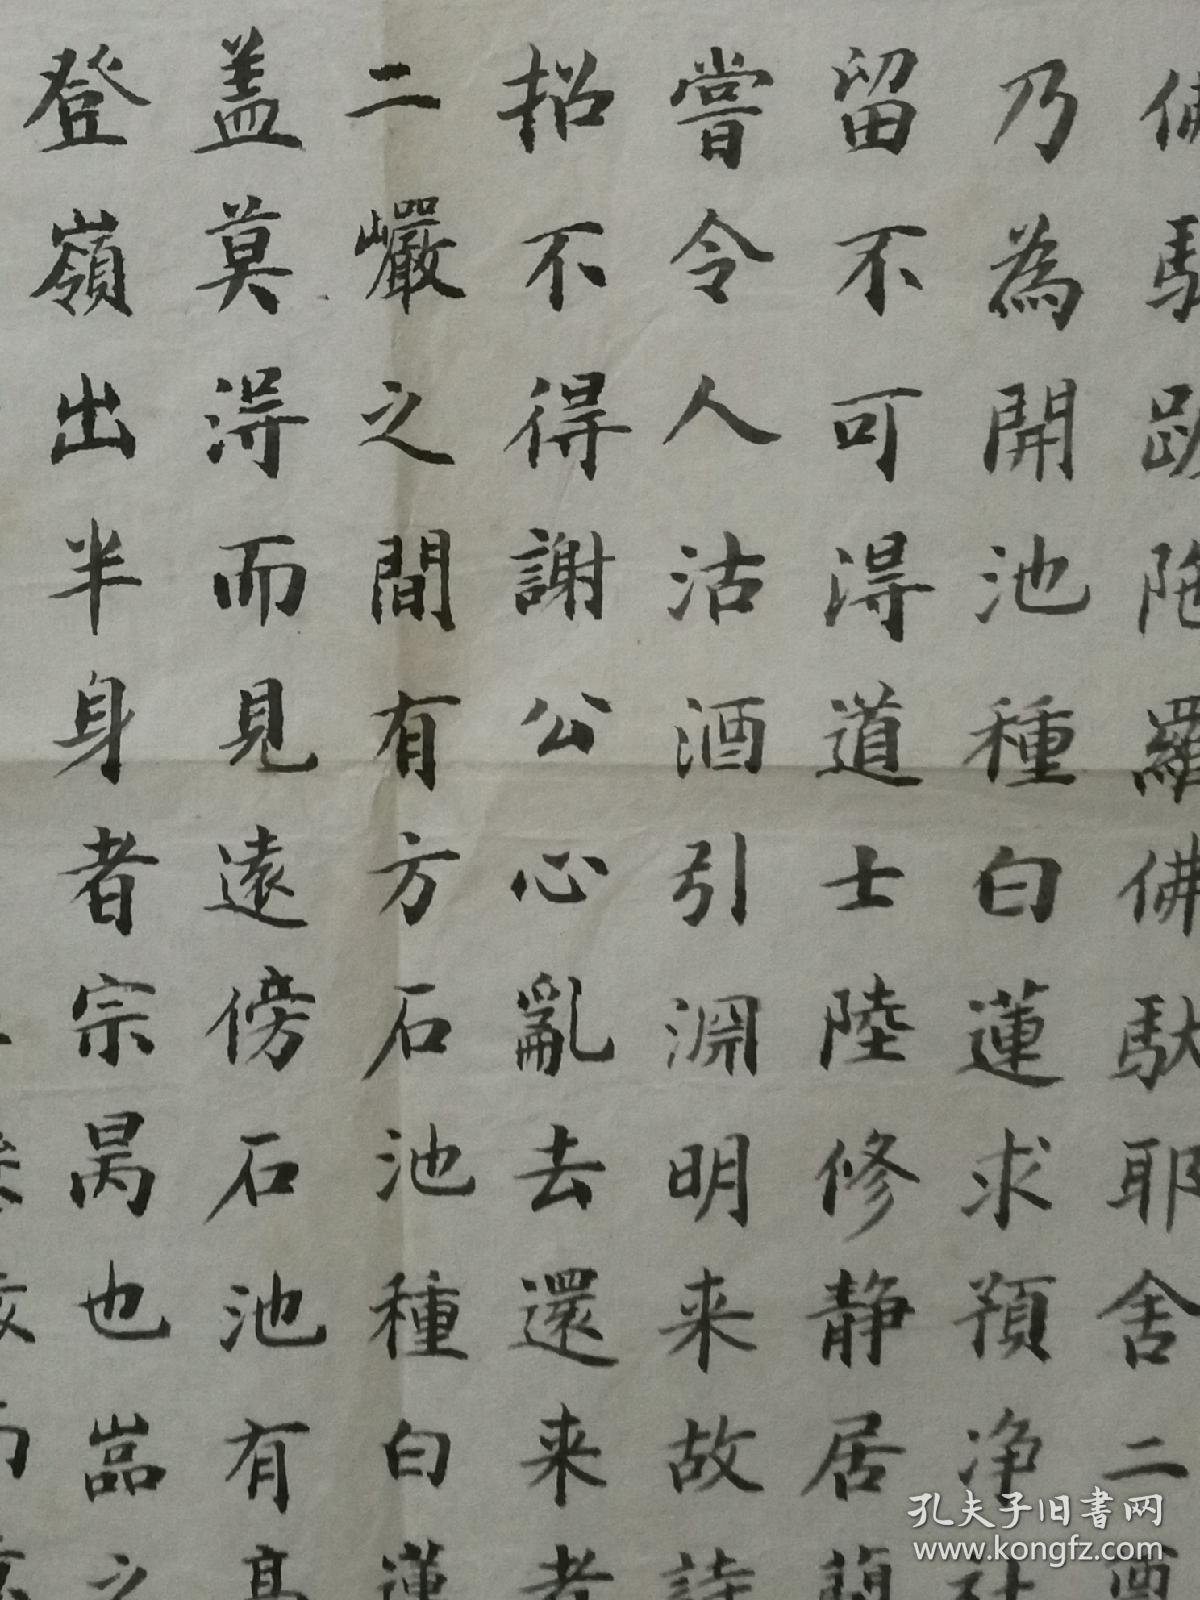 馱跋陁羅佛馱耶舍二
乃為開池種白蓮求預净社
留不可淂道士陸修静居簡
嘗令人沽酒引淵明来故詩
招不得謝公心亂去還来者
二巗之間有方石池種白蓮
盖莫淂而見遠傍石池有高
登嶺出半身者宗昺也嵓之
孔夫子旧书网
www.kongfz.com